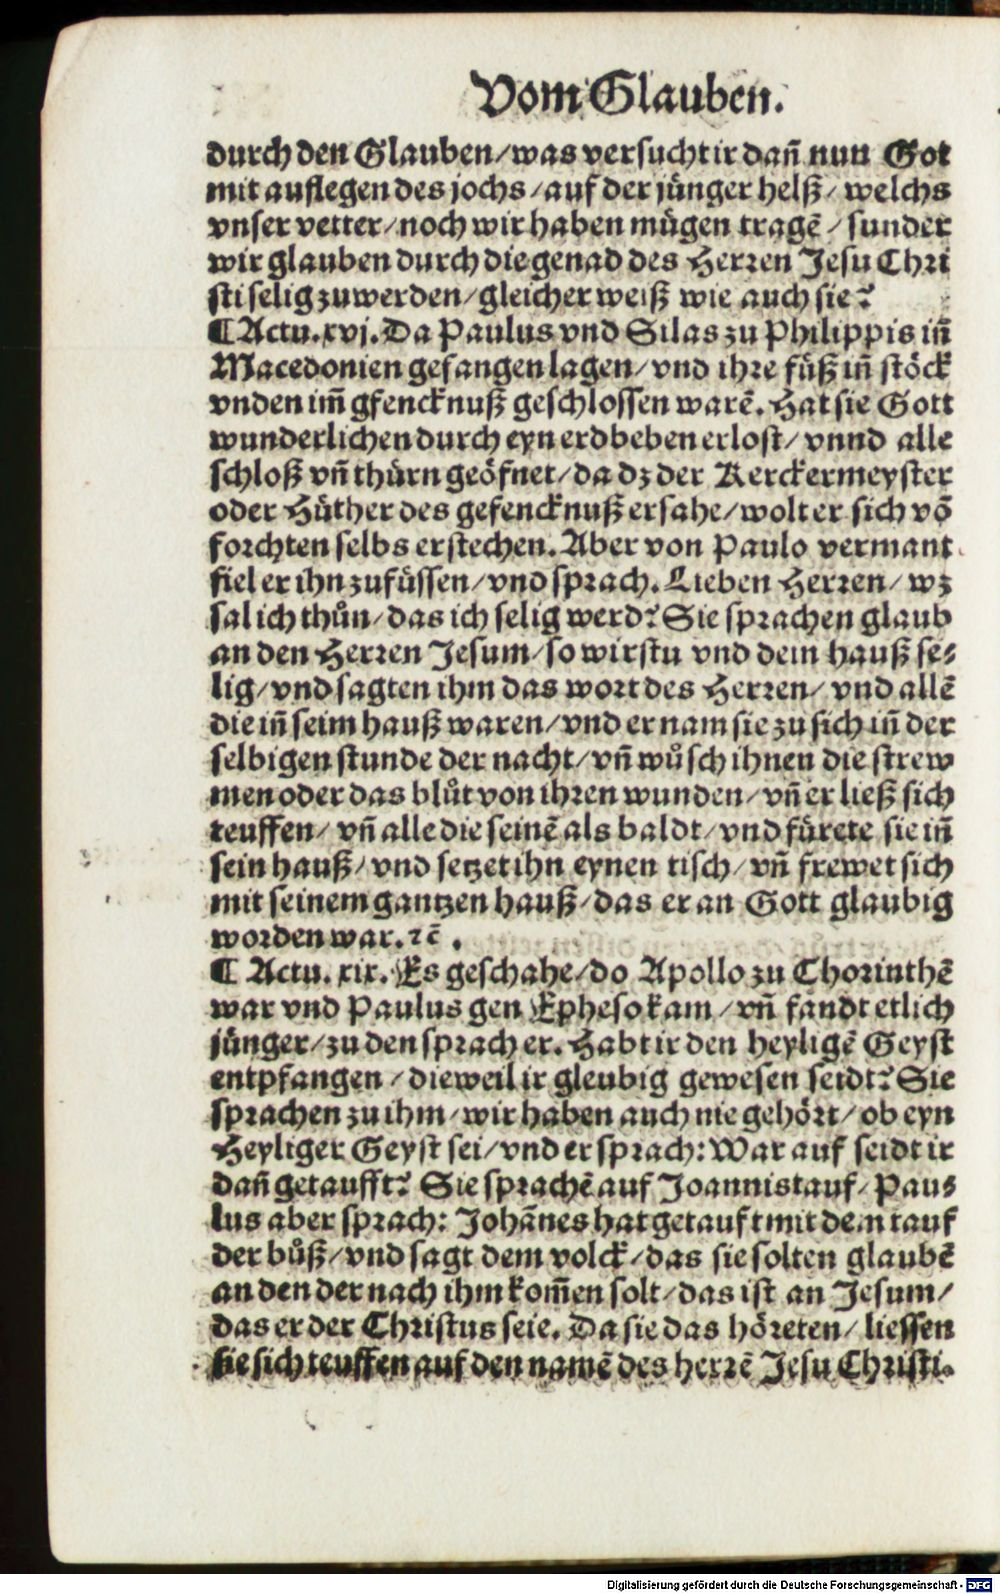 Vom Glauben.
durch den Glauben/was versucht ir dañ nun Got
mit auflegen des jochs/auf der jünger helß/welchs
vnser vetter/noch wir haben mügen tragē/sunder
wir glauben durch die genad des Herꝛen Jesu Chꝛi
sti selig zuwerden/gleicher weiß wie auch sie?
¶ Actu.xvj. Da Paulus vnd Silas zu Philippis iñ
Macedonien gefangen lagen/vnd ihꝛe füß iñ stöck
vnden im̄ gfencknuß geschlossen warē. Hat sie Gott
wunderlichen durch eyn erdbeben erlost/vnnd alle
schloß vñ thürn geöfnet/da dz der Kerckermeyster
oder Hüther des gefencknuß ersahe/wolt er sich vō
foꝛchten selbs erstechen. Aber von Paulo vermant
fiel er ihn zufüssen/vnd spꝛach. Lieben Herꝛen/wz
sal ich thůn/das ich selig werd? Sie spꝛachen glaub
an den Herꝛen Jesum/so wirstu vnd dein hauß se⸗
lig/vnd sagten ihm das woꝛt des Herꝛen/vnd allē
die iñ seim hauß waren/vnd er nam sie zu sich iñ der
selbigen stunde der nacht/vñ wůsch ihnen die strew
men oder das blůt von ihꝛen wunden/vñ er ließ sich
teuffen/vñ alle die seinē als baldt/vnd fürete sie iñ
sein hauß/vnd setzet ihn eynen tisch/vñ frewet sich
mit seinem gantzen hauß/das er an Gott glaubig
woꝛden war.ꝛc̄.
¶ Actu.xix. Es geschahe/do Apollo zu Choꝛinthē
war vnd Paulus gen Epheso kam/vñ fandt etlich
jünger/zu den spꝛach er. Habt ir den heyligē Geyst
entpfangen/dieweil ir gleubig gewesen seidt? Sie
spꝛachen zu ihm/wir haben auch nie gehöꝛt/ob eyn
Heyliger Geyst sei/vnd er spꝛach: War auf seidt ir
dañ getaufft? Sie spꝛachē auf Joannis tauf/Pau⸗
lus aber spꝛach: Johānes hat getauft mit dem tauf
der bůß/vnd sagt dem volck/das sie solten glaubē
an den der nach ihm kom̄en solt/das ist an Jesum/
das er der Chꝛistus seie. Da sie das höꝛeten/liessen
sie sich teuffen auf den namē des herꝛē Jesu Chꝛisti.
Digitalisierung gefördert durch die Deutsche Forschungsgemeinschaft - DFG